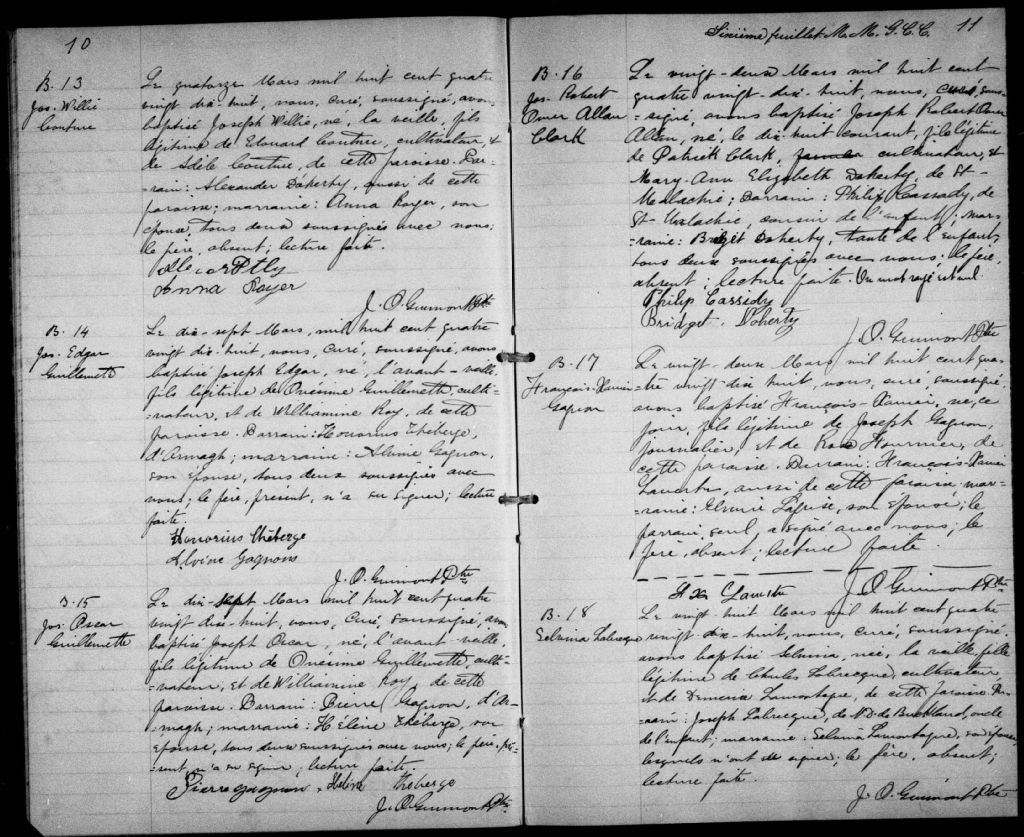 10
B. 13
Jos. Willie
Couture
Le quatorze Mars mil huit cent quatre
vingt dix-huit, nous, curé, soussigné, avons
baptisé Joseph Willie, né, la veille, fils
légitime de Edouard Couture, cultivateur, et
de Adèle Couture, de cette paroisse. Par-
rain: Alexander Doherty, aussi de cette
paroisse; marraine: Anna Royer, son
épouse, tous deux soussignés avec nous;
le père, absent; lecture faite.
Anna Royer
J. O. Guimont Ptre
B. 14
Jos. Edgar
Guillemette
Le dix-sept Mars, mil huit cent quatre
vingt dix-huit, nous, curé, soussigné, avons
baptisé Joseph Edgar, né, l'avant-veille,
fils légitime de Onésime Guillemette, culti-
-vateur, et de Williamine Roy, de cette
paroisse. Parrain: Honorius Théberge,
d'Armagh; marraine: Alvine Gagnon,
son épouse, tous deux soussignés avec
nous; le père, présent, n'a su signer; lecture
faite.
Honorius Théberge
Alvine Gagnons
J. O. Guimont Ptre
B. 15
Jos. Oscar
Guillemette
Le dix-sept Mars mil huit cent quatre
vingt dix-huit, nous, curé, soussigné, avons
baptisé Joseph Oscar, né, l'avant veille,
fils légitime de Onésime Guillemette, culti-
-vateur, et de Williamine Roy, de cette
paroisse. Parrain: Pierre Gagnon, d'Ar-
-magh; marraine: Hélène Théberge, son
épouse, tous deux soussignés avec nous; le père, pré-
-sent n'a su signer; lecture faite.
Pierre gagnon Heline Theberge
J. O. Guimont Ptre
Sixième feuillet M. M. G. C. C. 11
B. 16
Jos. Robert
Omer Allan
Clark
Le vingt-deux Mars mil huit cent
quatre vingt-dix-huit, nous, curé, sous-
-signé, avons baptisé Joseph Robert Omer
Allan, né, le dix-huit courant, fils légitime
de Patrick Clark, cultivateur, et
Mary-Ann Elizabeth Doherty, de St-
Malachie; Parrain: Philip Cassady, de
St-Malachie, cousin de l'enfant; mar-
-raine: Bridget Doherty, tante de l'enfant,
tous deux soussignés avec nous; le père,
absent; lecture faite. Un mot rayé est nul.
Philip Cassidy
Bridget. Doherty
J. O. Guimont Ptre
B. 17
François-Xavier
Gagnon
Le vingt-deux Mars mil huit cent qua-
-tre vingt-dix huit, nous, curé, soussigné
avons baptisé François-Xavier, né, ce
jour, fils légitime de Joseph Gagnon,
journalier, et de Rose Fournier, de
cette paroisse. Parrain: François-Xavier
aussi de cette paroisse; mar-
-raine: Elmire son épouse; le
parrain, seul, a signé avec nous; le
père, absent; lecture faite.
J. O. Guimont Ptre
B. 18
Selmina Labrecque
Le vingt huit Mars mil huit cent quatre
vingt-dix-huit, nous, curé, soussigné,
avons baptisé née, la veille, fille
légitime de Charles Labrecque, cultivateur,
et de Lamontagne, de cette paroisse. Par-
-rain: Joseph Labrecque, de N. D. de Buckland, oncle
de l'enfant; marraine: Lamontagne, son épouse,
lesquels n'ont su signer; le père, absent;
lecture faite.
J. O. Guimont Ptre